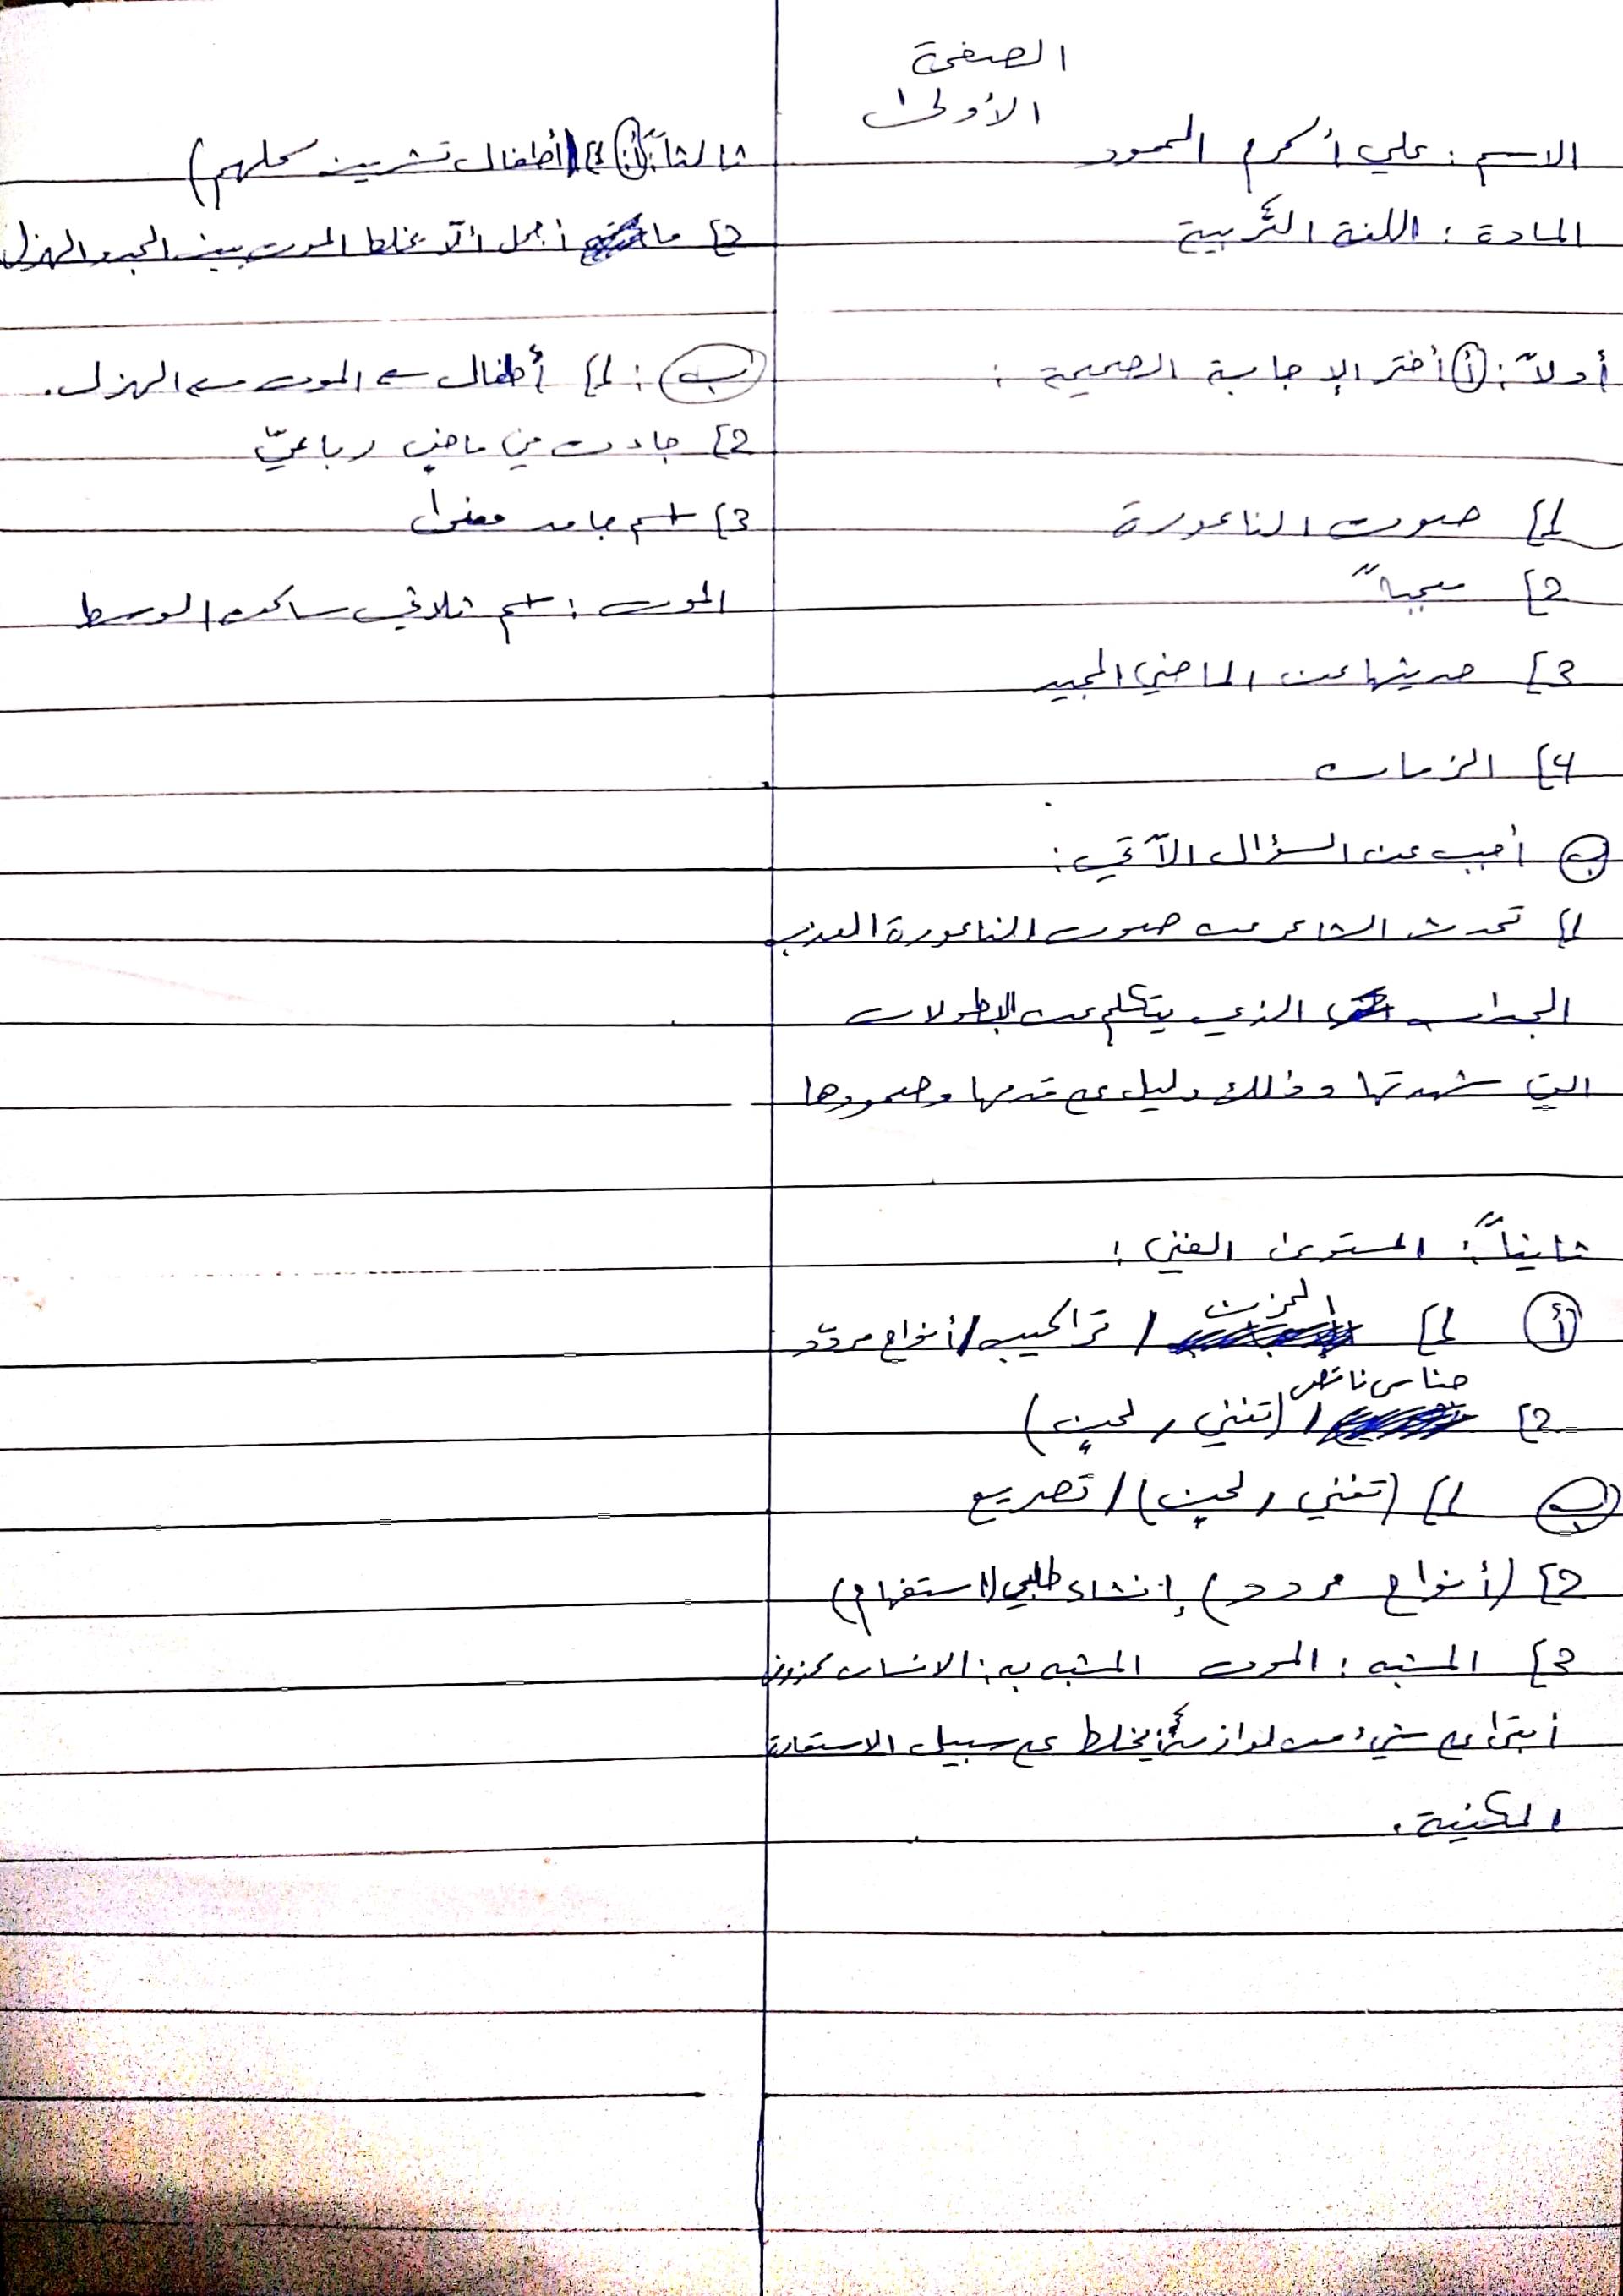 الصفحة
الأولى
الاسم : علي أكرم المحمود
المادة : اللغة العَربية
أولاً : أ أختر الإجابة الصحيحة :
1] صوت الناعورة
2]
3] حديثها عن الماضي المجيد
4] الزمان
ب أجب عن السؤال الآتي :
1] تحدث الشاعر عن صوت الناعورة العذب
الجذاب الذي يتكلم عن البطولات
التي شهدتها وذلك دليل على قدمها وصمودها
ثانياً : المستوى الفني :
أ 1] الحزن / تراكيب / أنواح مردّد
2] جناس ناقص / (تغني , لحنٍ)
ب 1] (تغني , لحنٍ) / تصريع
2] (أنواح مردد) إنشاء طلبي (استفهام)
3] المشبه : الموت المشبه به : الانسان محذوف
أبقى على شيء من لوازمه يخلط على سبيل الاستعارة
المكنية .
ثالثاً : أ : 1] (أطفال تشرين كلهم)
2] ما أجمل ألّا يخلط الموت بين الجد والهزل
ب : 1] أطفال ← الموت ← الهزل .
2] جادت من ماضٍ رباعيّ
3] اسم جامد معنى
الموت : اسم ثلاثي ساكن الوسط